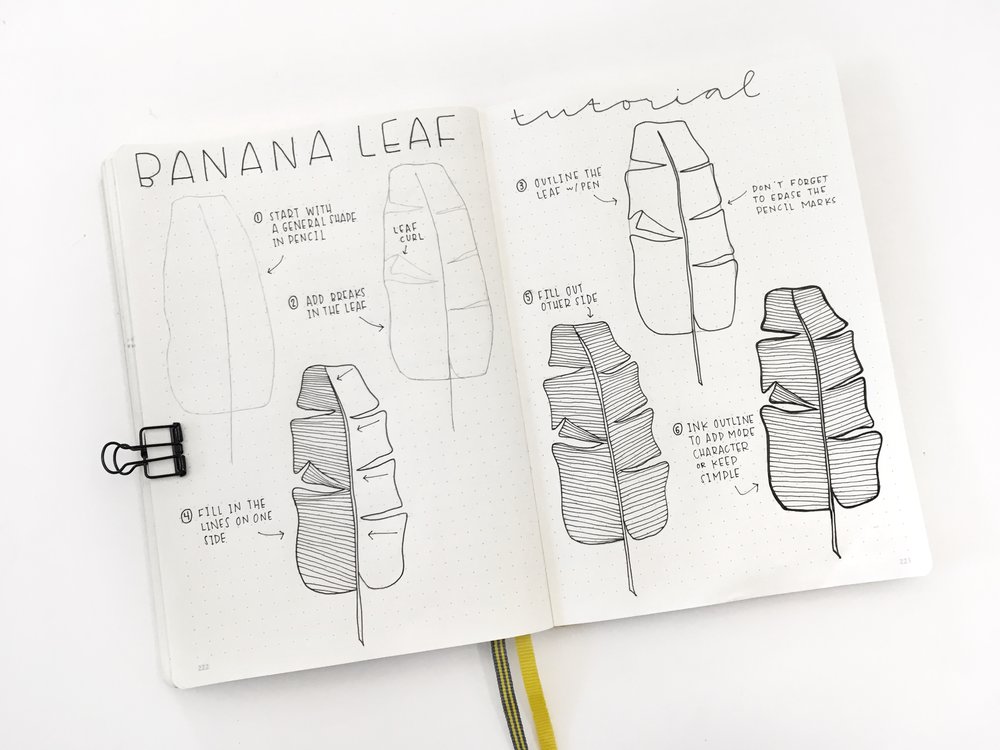 BANANA LEAF
① START WITH
A GENERAL SHAPE
IN PENCIL
LEAF
CURL
② ADD BREAKS
IN THE LEAF
④ FILL IN THE
LINES ON ONE
SIDE
222
tutorial
③ OUTLINE THE
LEAF w/ PEN
DON'T FORGET
TO ERASE THE
PENCIL MARKS
⑤ FILL OUT
OTHER SIDE
⑥ INK OUTLINE
TO ADD MORE
CHARACTER
OR KEEP
SIMPLE